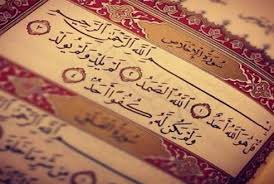 سُورَةُ الإِخْلَاصِ
بِسْمِ اللَّهِ الرَّحْمَٰنِ الرَّحِيمِ
قُلْ هُوَ اللَّهُ أَحَدٌ ۝ اللَّهُ الصَّمَدُ ۝ لَمْ يَلِدْ وَلَمْ يُولَدْ ۝
وَلَمْ يَكُن لَّهُ كُفُوًا أَحَدٌ ۝
سُورَةُ الفَلَقِ